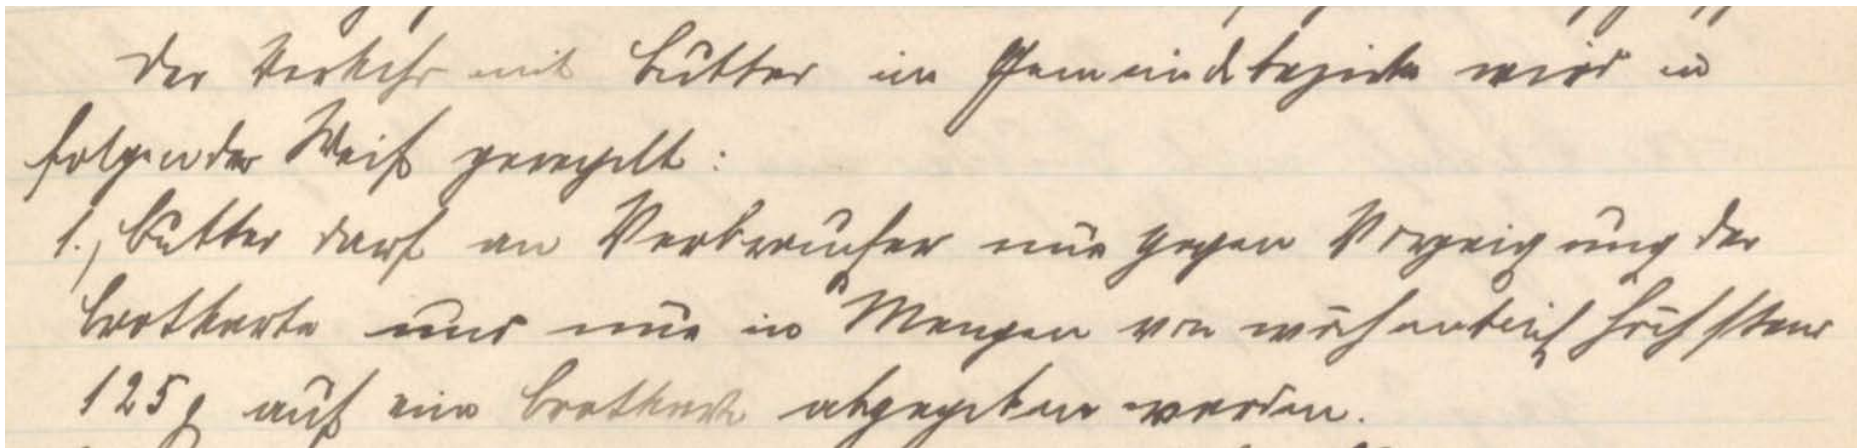 Der Verkehr mit Butter im Gemeindebezirke wird in
folgender Weiß geregelt:
1., Butter darf an Verbraucher nur gegen Vorzeigung der
Brotkarte und nur in Mengen von wöchentlich höchstens
125 g auf eine Brotkarte abgegeben werden.